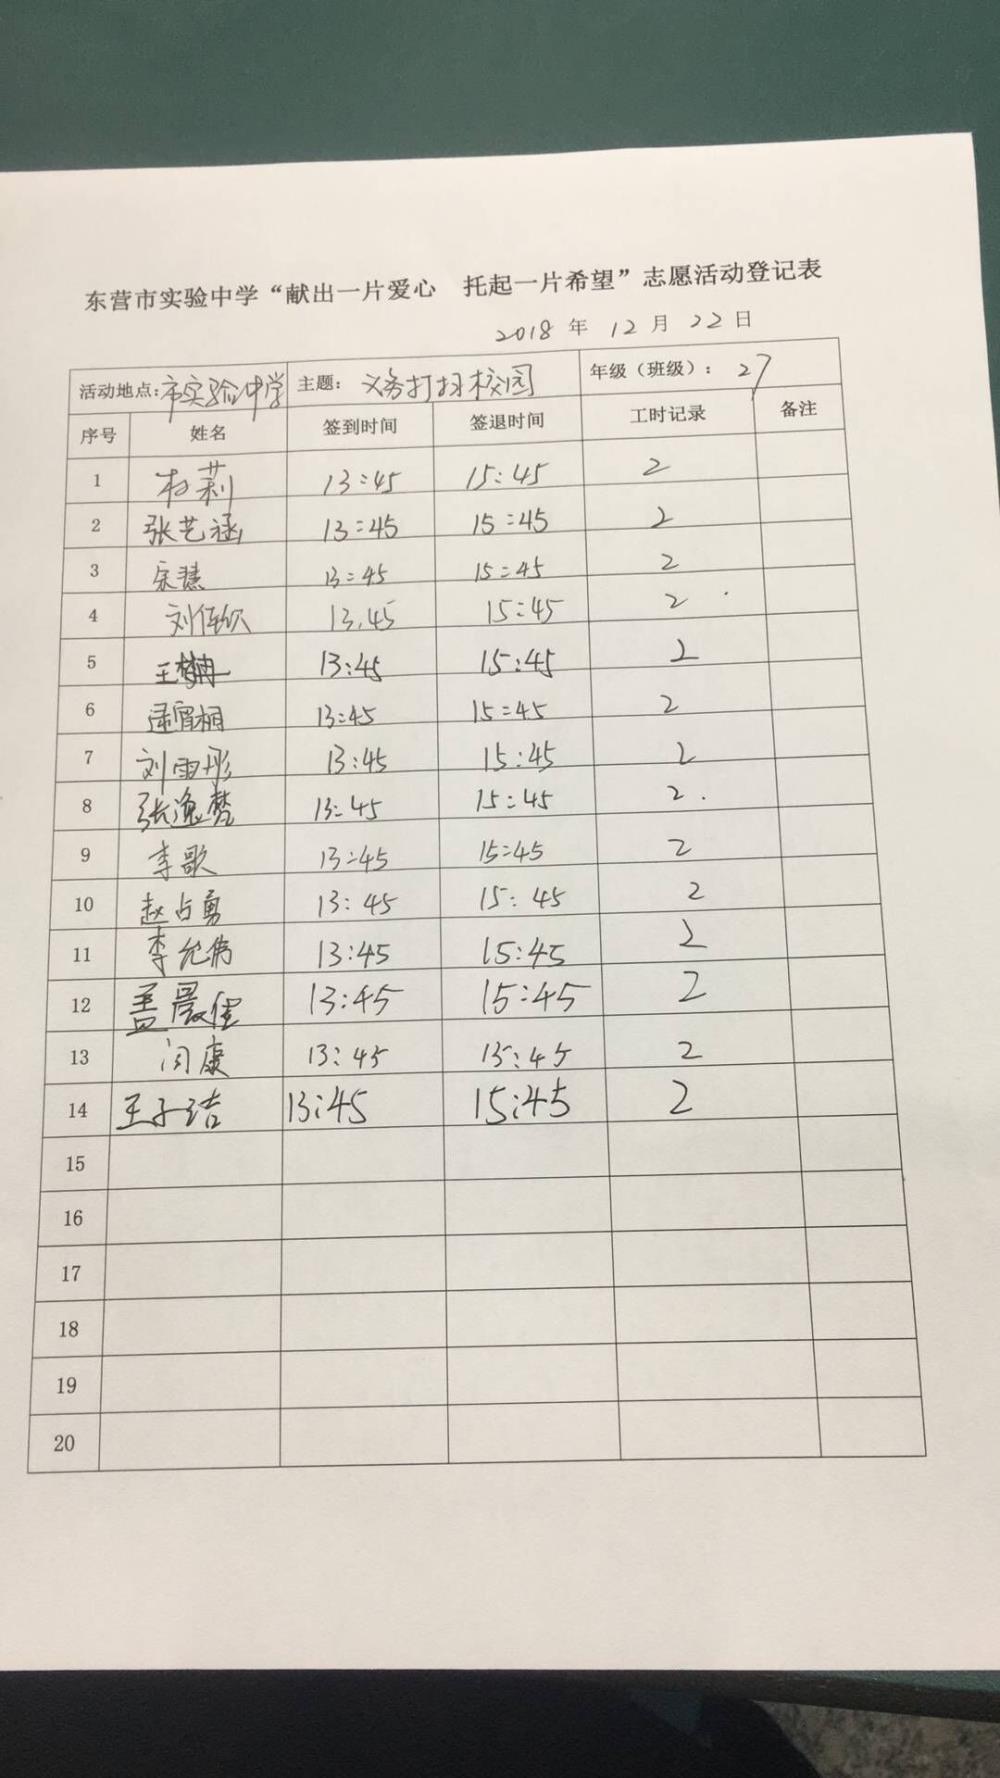 东营市实验中学“献出一片爱心 托起一片希望”志愿活动登记表
2018 年 12 月 22 日
活动地点:市实验中学 主题: 义务打扫校园 年级（班级）: 27
序号 姓名 签到时间 签退时间 工时记录 备注
1 杜莉 13:45 15:45 2
2 张艺涵 13:45 15:45 2
3 宋慧 13:45 15:45 2
4 刘 13.45 15:45 2
5 王 13:45 15:45 2
6 13:45 15:45 2
7 刘雨彤 13:45 15:45 2
8 张逸梦 13:45 15:45 2
9 李歌 13:45 15:45 2
10 赵占勇 13:45 15:45 2
11 李允伟 13:45 15:45 2
12 盖晨 13:45 15:45 2
13 闫康 13:45 15:45 2
14 王子洁 13:45 15:45 2
15
16
17
18
19
20